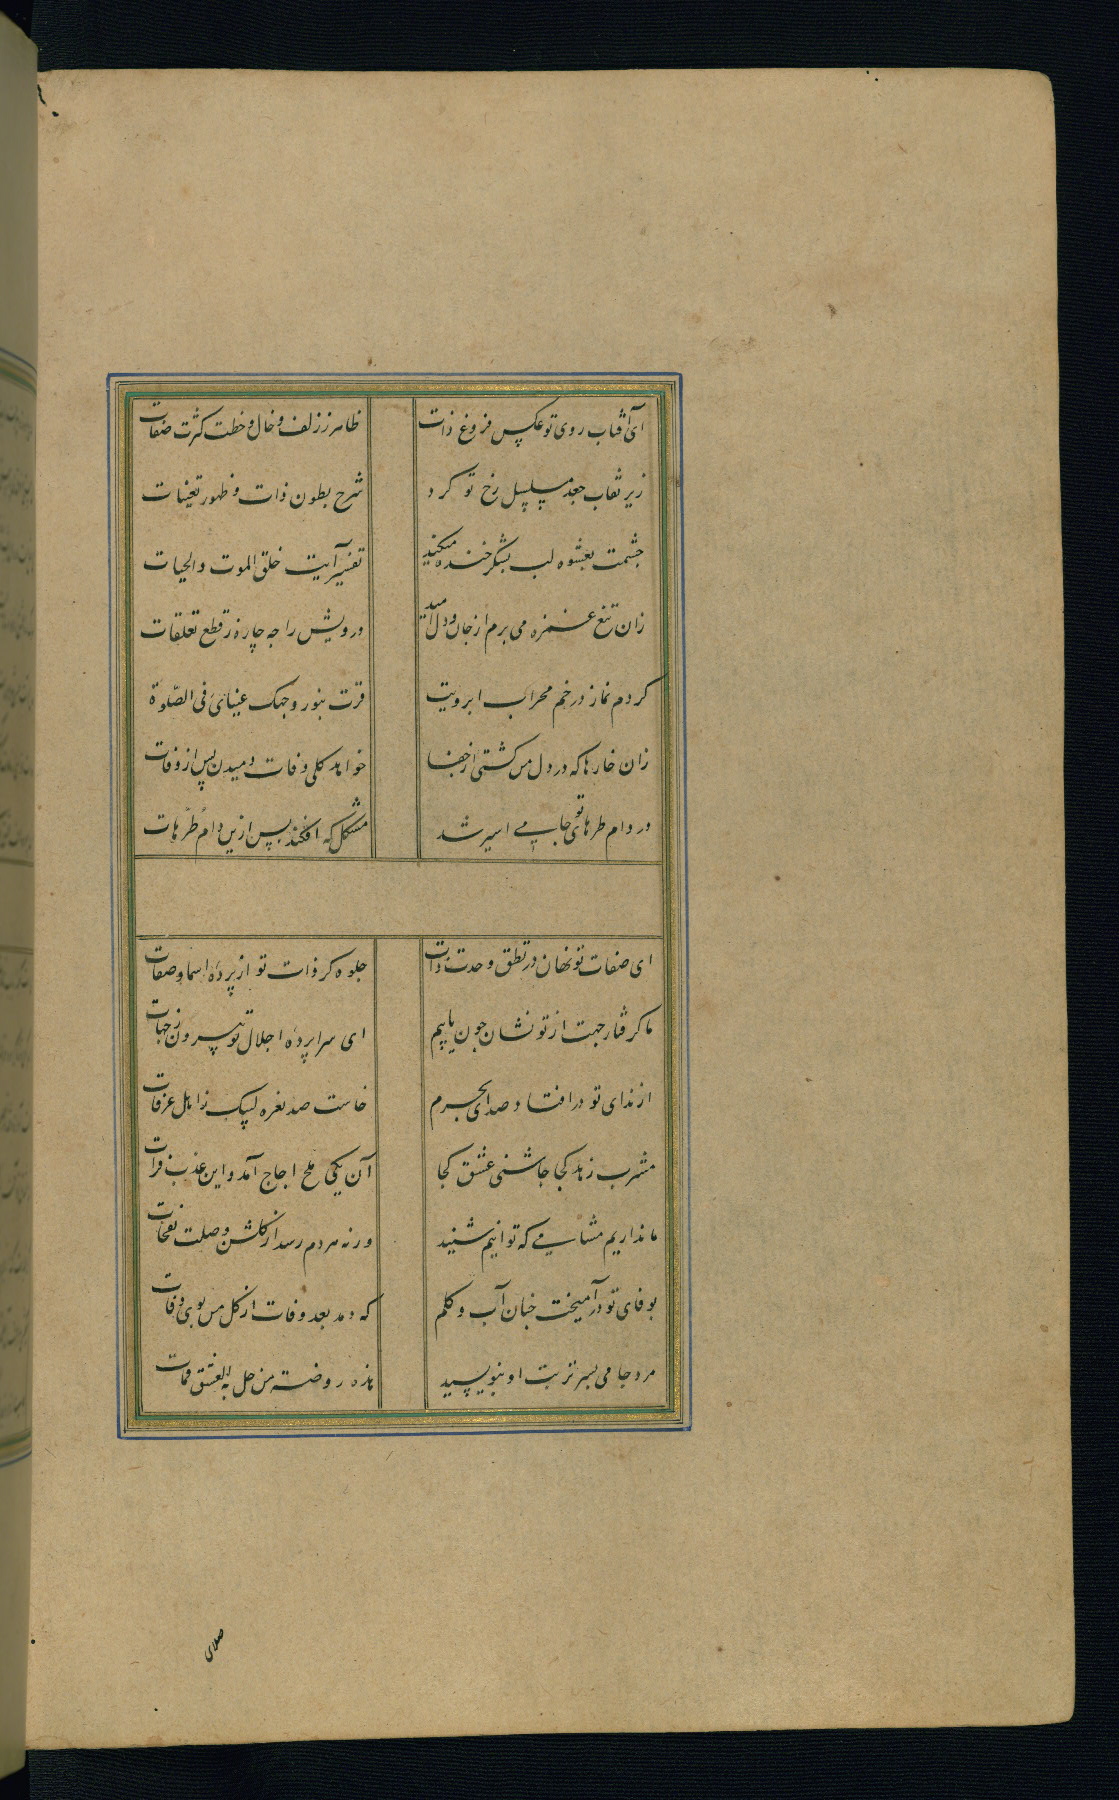 ای آفتاب روی تو عکس فروغ ذات
ظاهر ز زلف و خال و خطت کثرت صفات
زیر نقاب جعد مسلسل رخ تو کرد
شرح بطون ذات و ظهور تعینات
چشمت بعشوه لب بشکر خنده میکنید
تفسیر آیت خلق الموت والحیات
زان تیغ غمزه می برم از جان و دل امید
درویش را چه چاره ز قطع تعلقات
کردم نماز در خم محراب ابرویت
قرت بنور وجهک عینای فی الصلوة
زان خارها که در دل من کشتی از جفا
خواهد کل وفات دمیدن پس از وفات
در دام طرهای تو جامی اسیر شد
مشکل که افکند پس ازین دام طرهات
ای صفات تو نهان در تطق وحدت ذات
جلوه کر ذات تو از پردهٔ اسما و صفات
ما کرفتار جهت از تو نشان چون یابیم
ای سراپردهٔ اجلال تو بیرون ز جهات
از ندای تو در افتاد صدائی بحرم
خاست صد نعره لبیک ز اهل عرفات
مشرب زهد کجا چاشنی عشق کجا
آن یکی ملح اجاج آمد و این عذب فرات
ما نداریم مشامی که توانیم شنید
ورنه هر دم رسد از کلشن وصلت نفحات
بوفای تو در آمیخت چنان آب و کلم
که دمد بعد وفات از کل من بوی وفات
مرد جامی بسر تربت او بنویسید
هذه روضة من حل به العشق فمات
صلای